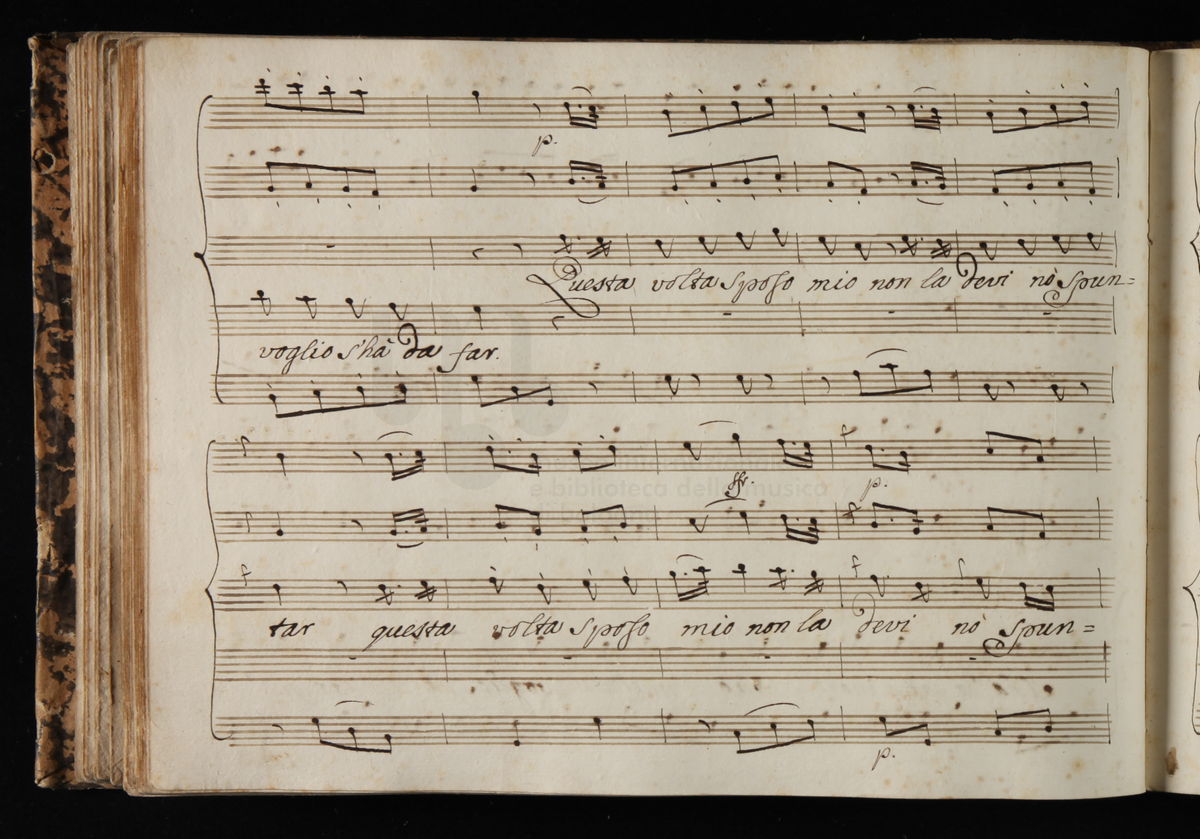 p.
Questa volta Sposo mio non la devi nò Spun=
voglio s'hà da far.
sfr. p.
e biblioteca della musica
tar questa volta Sposo mio non la devi nò Spun=
p.